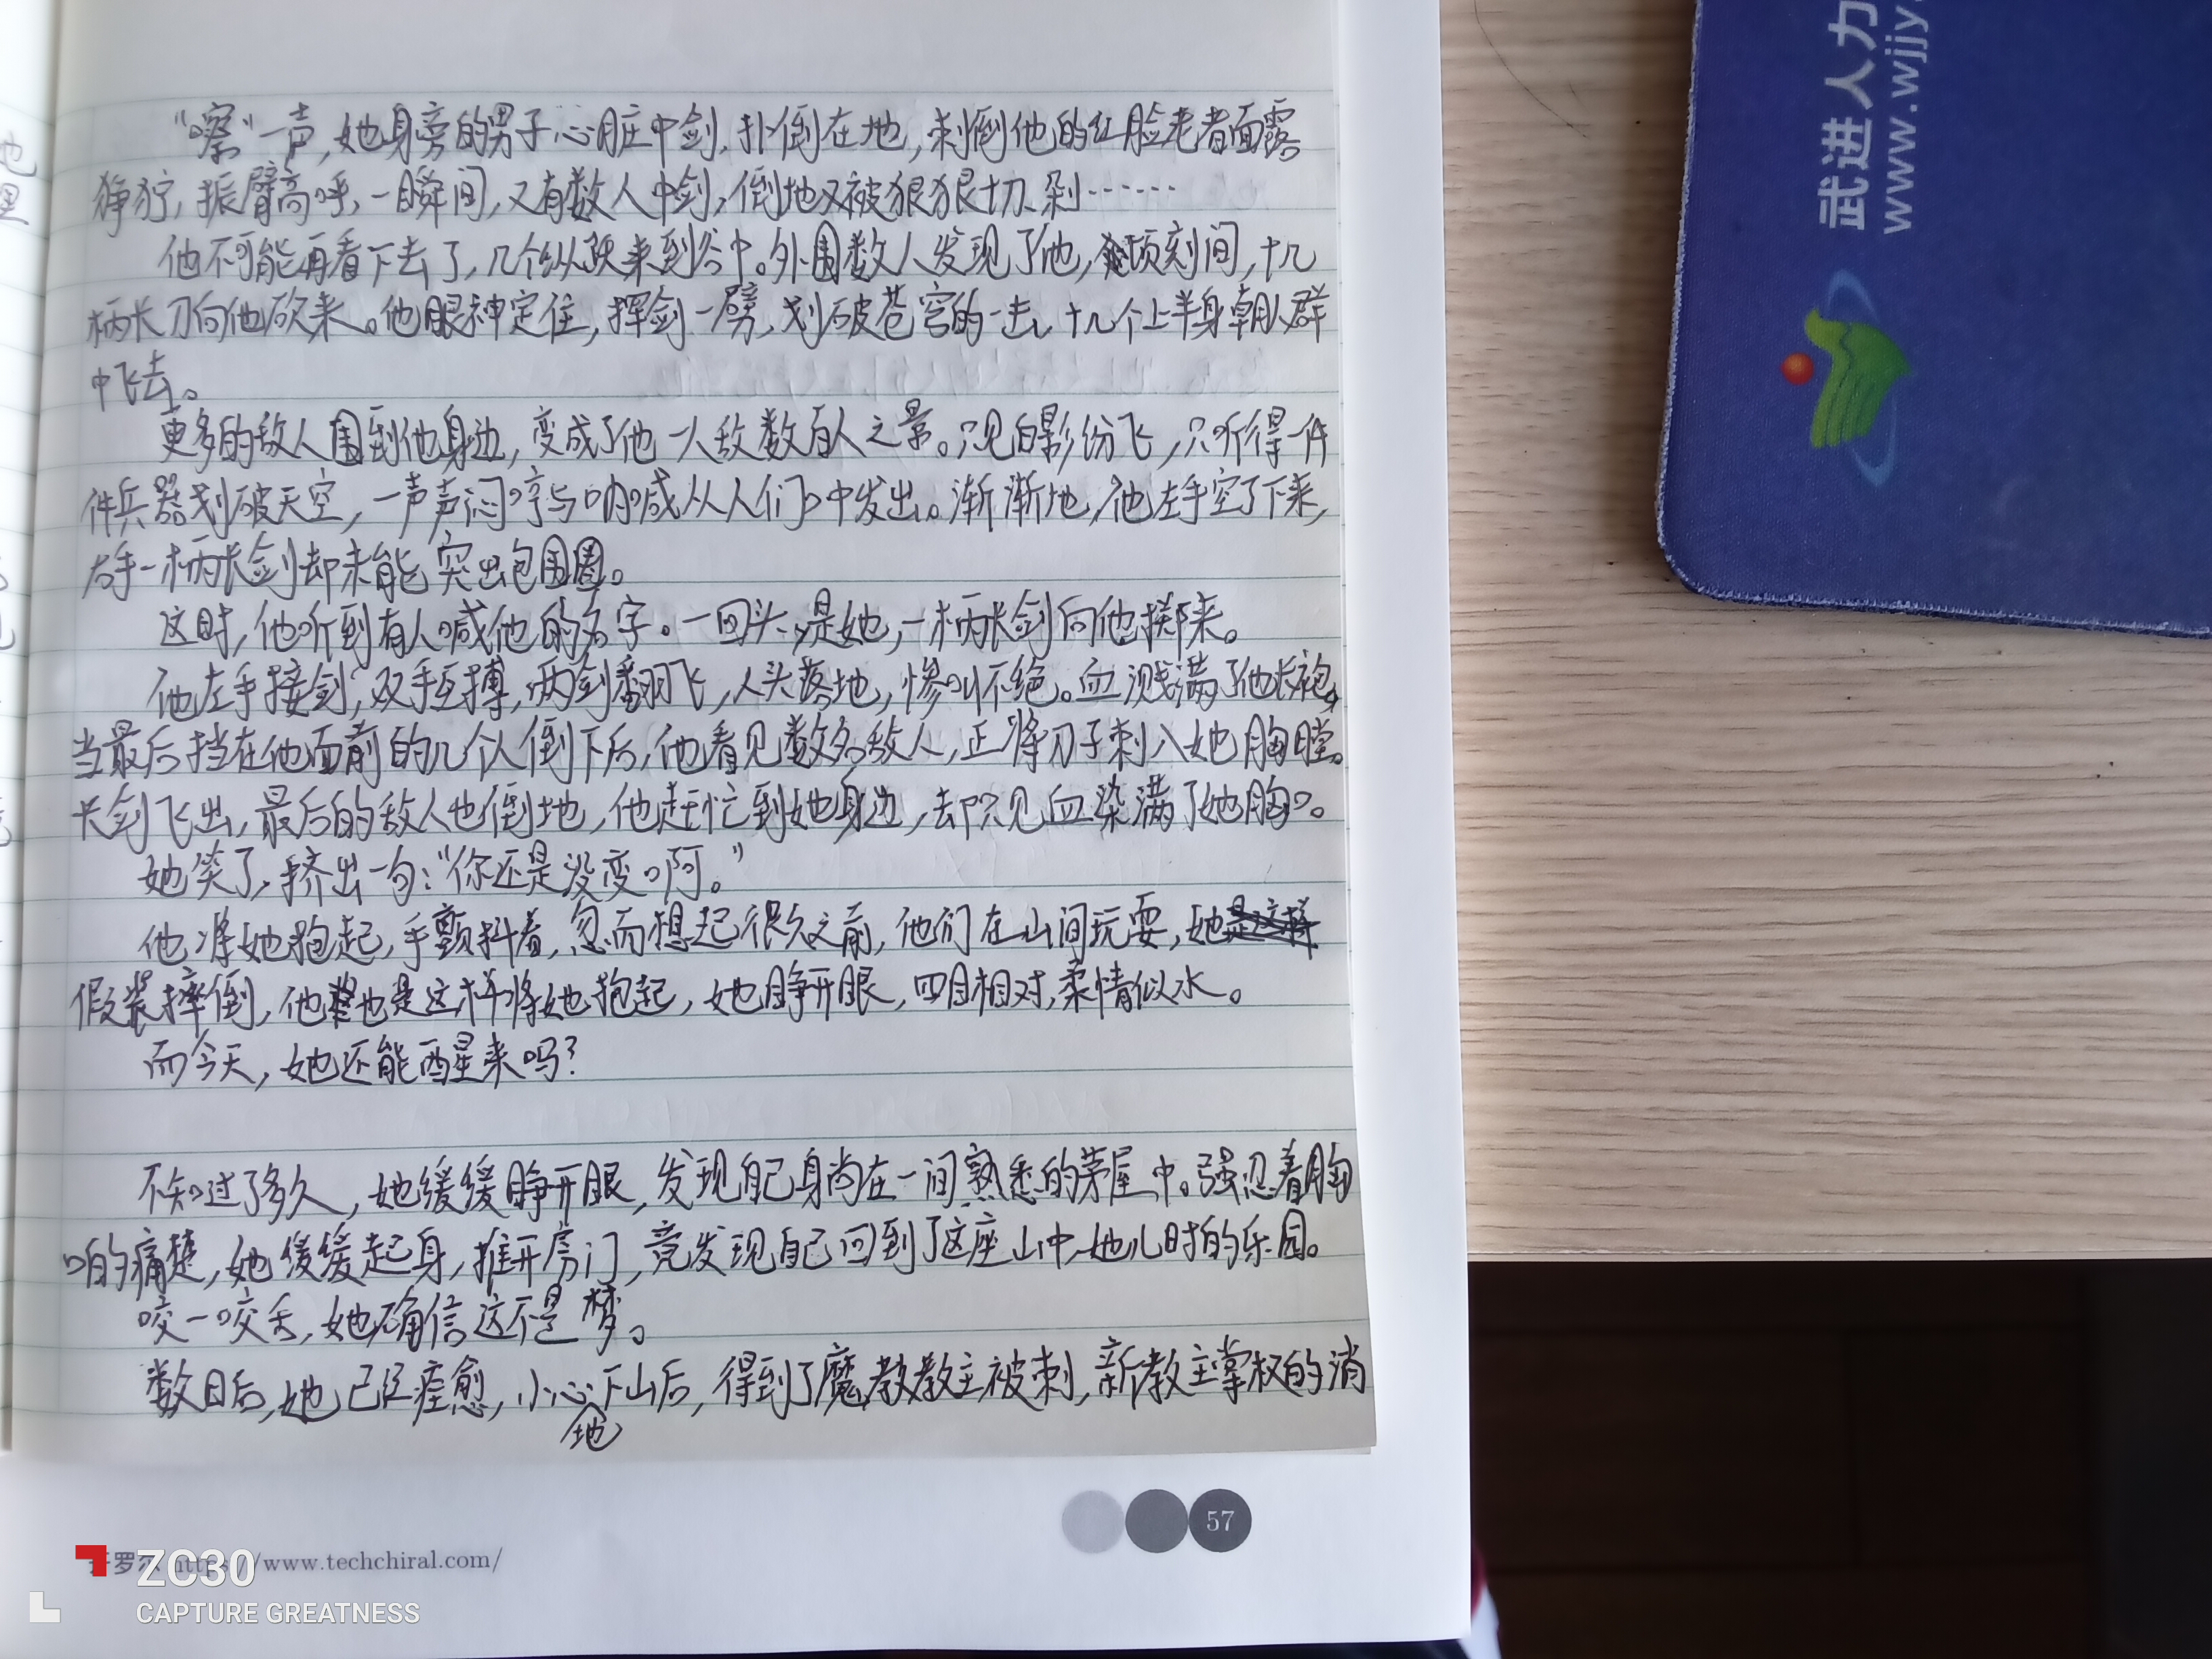 “嚓”一声,她身旁的男子心脏中剑,扑倒在地,刺倒他的红脸老者面露
狰狞,振臂高呼,一瞬间,又有数人中剑,倒地又被狠狠切剁……
他不可能再看下去了,几个纵跃来到谷中。外围数人发现了他,顷刻间,十几
柄长刀向他砍来。他眼神定住,挥剑一劈,划破苍穹的一击,十几个上半身朝人群
中飞去。
更多的敌人围到他身边,变成了他一人敌数百人之景。只见白影纷飞,只听得一件
件兵器划破天空,一声声闷哼与呐喊从人们口中发出。渐渐地,他左手空了下来,
右手一柄长剑却未能突出包围圈。
这时,他听到有人喊他的名字。一回头,是她,一柄长剑向他掷来。
他左手接剑,双手互搏,两剑翻飞,人头落地,惨叫不绝。血溅满了他长袍,
当最后挡在他面前的几个人倒下后,他看见数名敌人,正将刀子刺入她胸膛。
长剑飞出,最后的敌人也倒地,他赶忙到她身边,却只见血染满了她胸口。
她笑了,挤出一句:“你还是没变啊。”
他将她抱起,手颤抖着,忽而想起很久之前,他们在山间玩耍,她
假装摔倒,他也是这样将她抱起,她睁开眼,四目相对,柔情似水。
而今天,她还能醒来吗?
不知过了多久,她缓缓睁开眼,发现自己身尚在一间熟悉的茅屋中。强忍着胸
口的痛楚,她缓缓起身,推开房门,竟发现自己回到了这座山中,她儿时的乐园。
咬一咬舌,她确信这不是梦。
数日后,她已经痊愈,小心地下山后,得到了魔教教主被刺,新教主掌权的消
57
罗 https://www.techchiral.com/
ZC30
CAPTURE GREATNESS
武进人力
www.wjjy